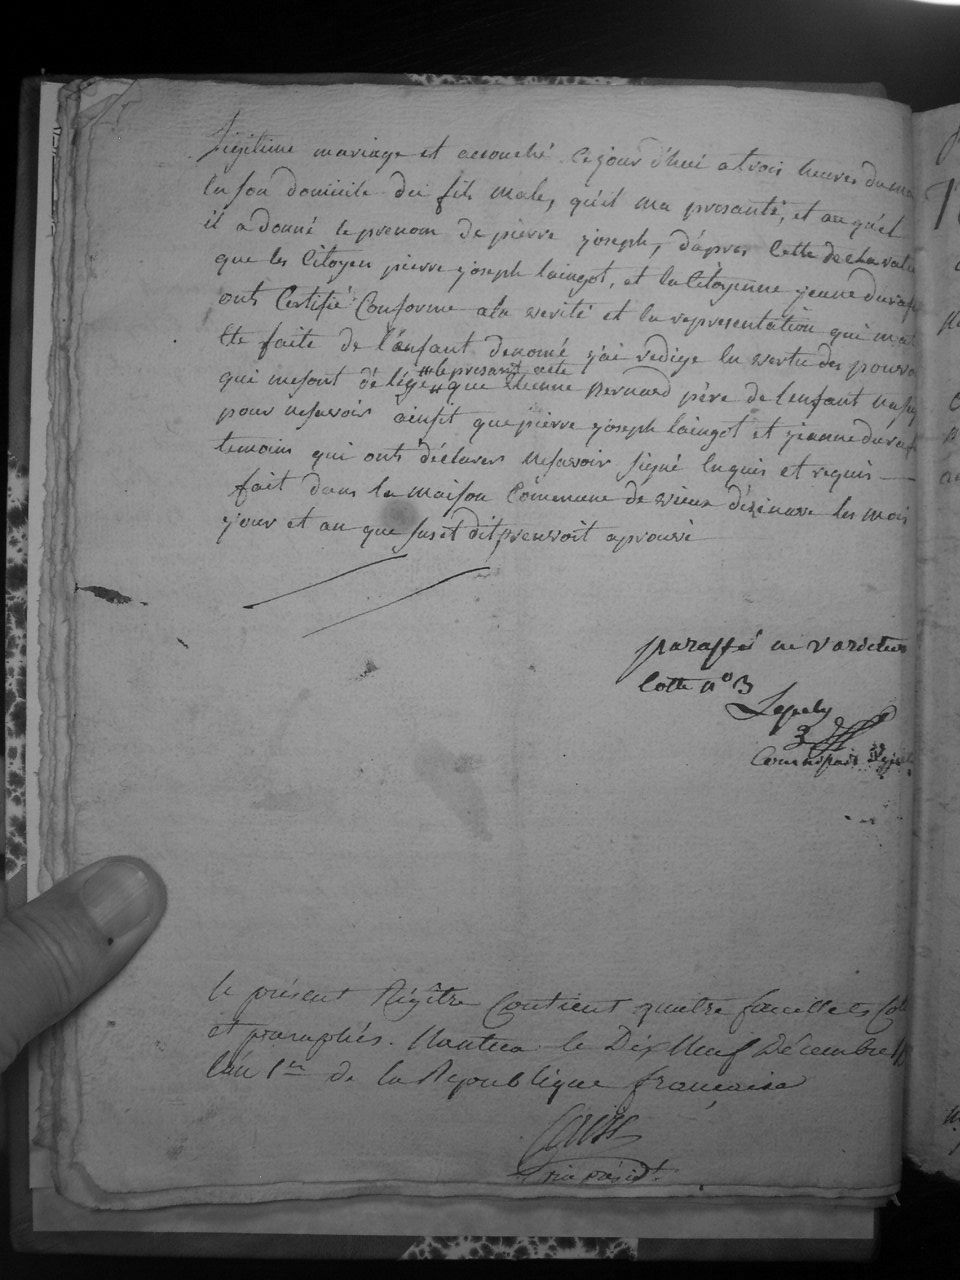 légitime mariage et acouché cejour d'hui a trois heures du ma
en son domicile dei fils male, qu'il ma presanté, et auquel
il a donné le prenom de pierre yoseph, d'apres cette declaration
que les Citoyen pierre yoseph laingot, et la Citoyenne yeanne duraf
onts Certifié Conforme ala verité et la representation qui mat
Ete faite de l'anfant denomé j'ai redige en vertu des pouvo
qui mesont délégué #lepresant acte# que Etienne Bernard père de lenfant na si
pour nesavoir ainsit que pierre yoseph laingot et yeanne duraf
temoins qui onts déclarer nesavoir signé enquis et requis
fait dans la maison Comenune de vieux dézinave les mois
your et an que susetdit aprouvé
paraffé ne varietur
cotte n° 3
le présent Régître Contient quatre faeillets Cott
et paraphés. Nantua le Dix Neuf Décembre
l'an 1er de la République françaisa